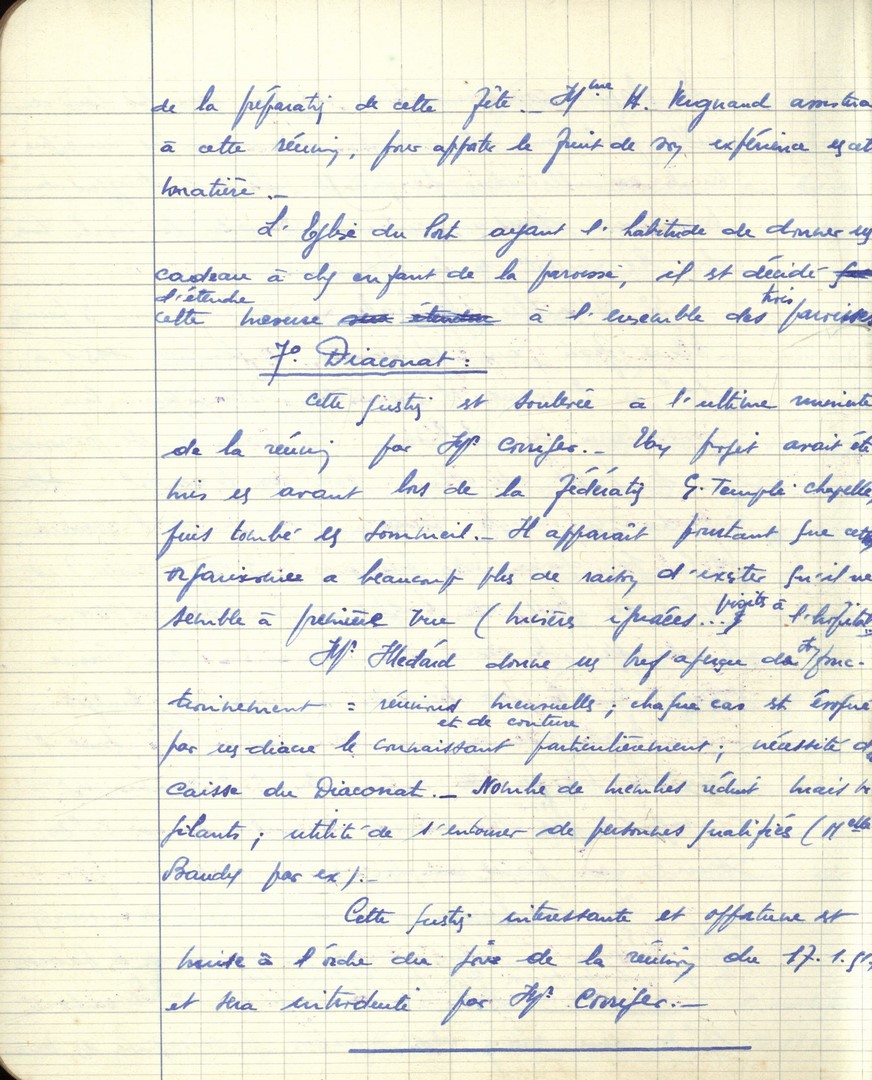 de la préparation de cette fête._ Mme H. assistera
à cette réunion, pour apporter le fruit de son expérience en cette
matière._
L'Eglise du Port ayant l'habitude de donner un
cadeau à chq enfant de la paroisse, il est décidé
d'étendre
cette mesure sera étendue à l'ensemble des trois paroisses
7° Diaconat :
Cette question est soulevée à l'ultime minute
de la réunion par Mr. ._ Un projet avait été
mis en avant lors de la fédération G. Temple-Chapelle,
puis tombé en sommeil._ Il apparaît pourtant que cette
organisme a beaucoup plus de raison d'exister qu'il ne
semble à première vue (misères ignorées... visites à l'hôpital
Mr. Médard donne un bref aperçu de son fonc-
tionnement = réunions mensuelles ; chaque cas est évoqué
et de couture
par un diacre le connaissant particulièrement ; nécessité d
caisse du Diaconat._ Nombre de membres réduit mais
; utilité de s'entourer de personnes qualifiées (Melle
par ex)._
Cette question intéressante et opportune est
mise à l'ordre du jour de la réunion du 17.1.
et sera introduite par Mr. ._